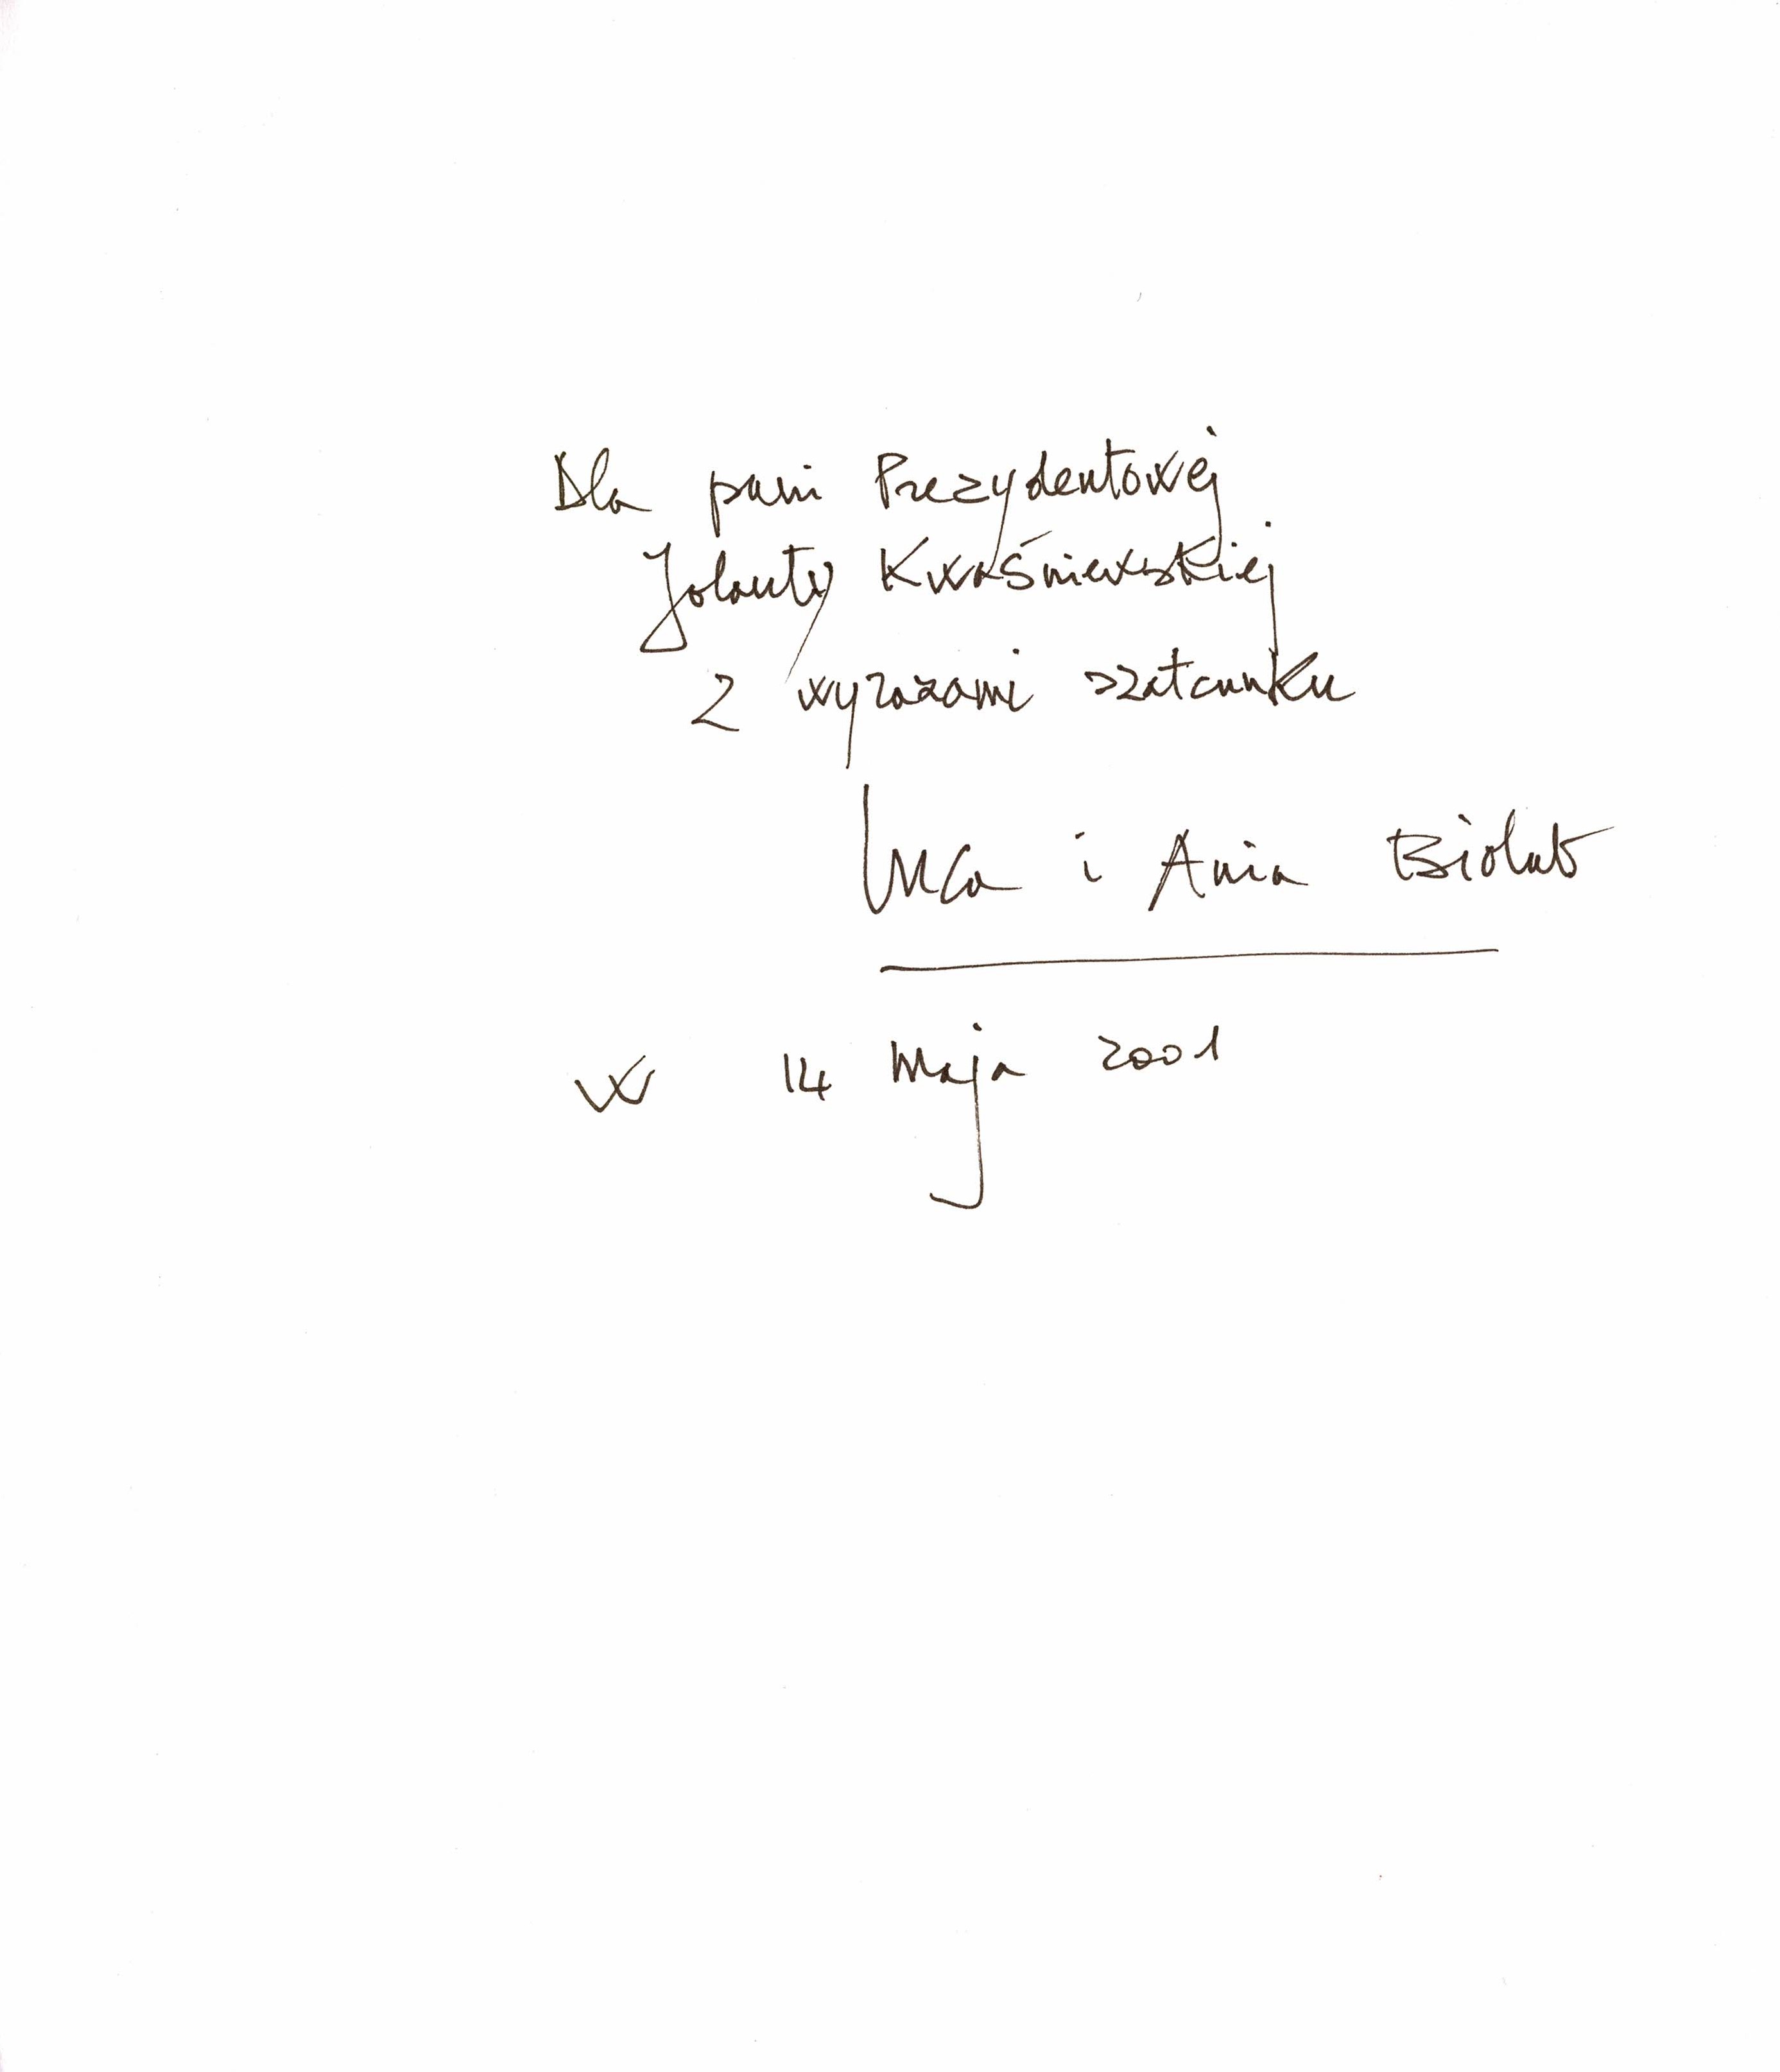 Dla pani Prezydentowej
Jolanty Kwaśniewskiej
z wyrazami szatcunku
i Ania
W 14 Maja 2001